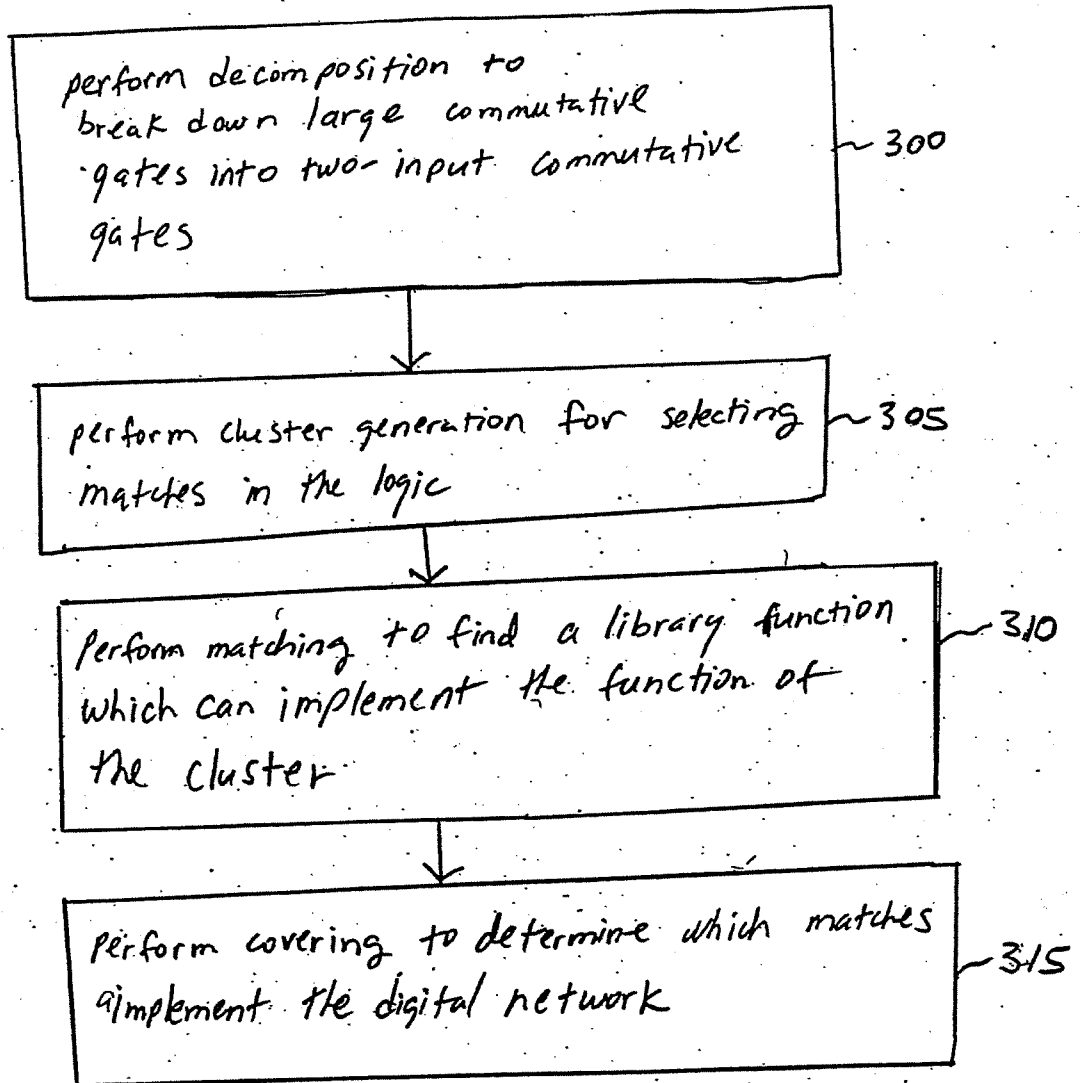 perform decomposition to
break down large commutative
gates into two-input commutative
gates
300
perform cluster generation for selecting
matches in the logic
305
Perform matching to find a library function
which can implement the function of
the cluster
310
Perform covering to determine which matches
implement the digital network
315